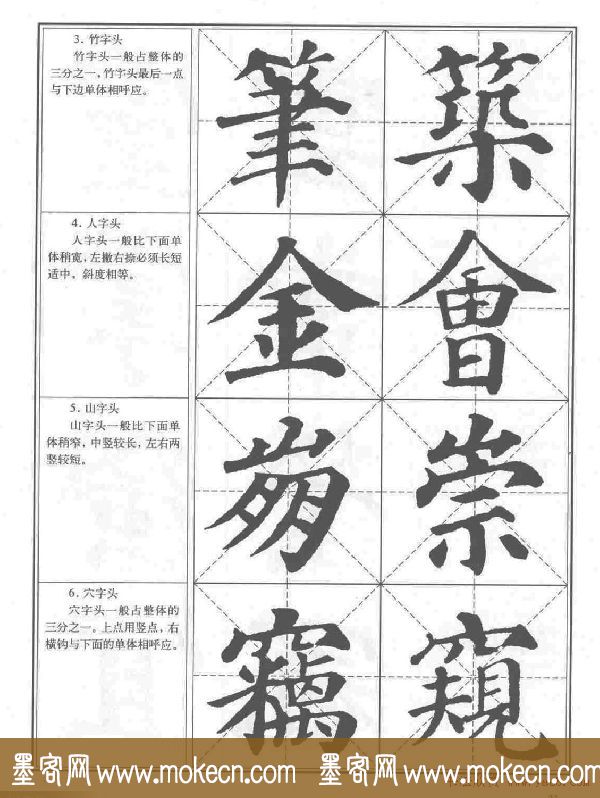 3. 竹字头
竹字头一般占整体的
三分之一，竹字头最后一点
与下边单体相呼应。
筆 築
4. 人字头
人字头一般比下面单
体稍宽，左撇右捺必须长短
适中，斜度相等。
金 會
5. 山字头
山字头一般比下面单
体稍窄，中竖较长，左右两
竖较短。
崩 崇
6. 穴字头
穴字头一般占整体的
三分之一。上点用竖点，右
横钩与下面的单体相呼应。
竊 窺
墨客网 www.mokecn.com 墨客网 www.mokecn.com